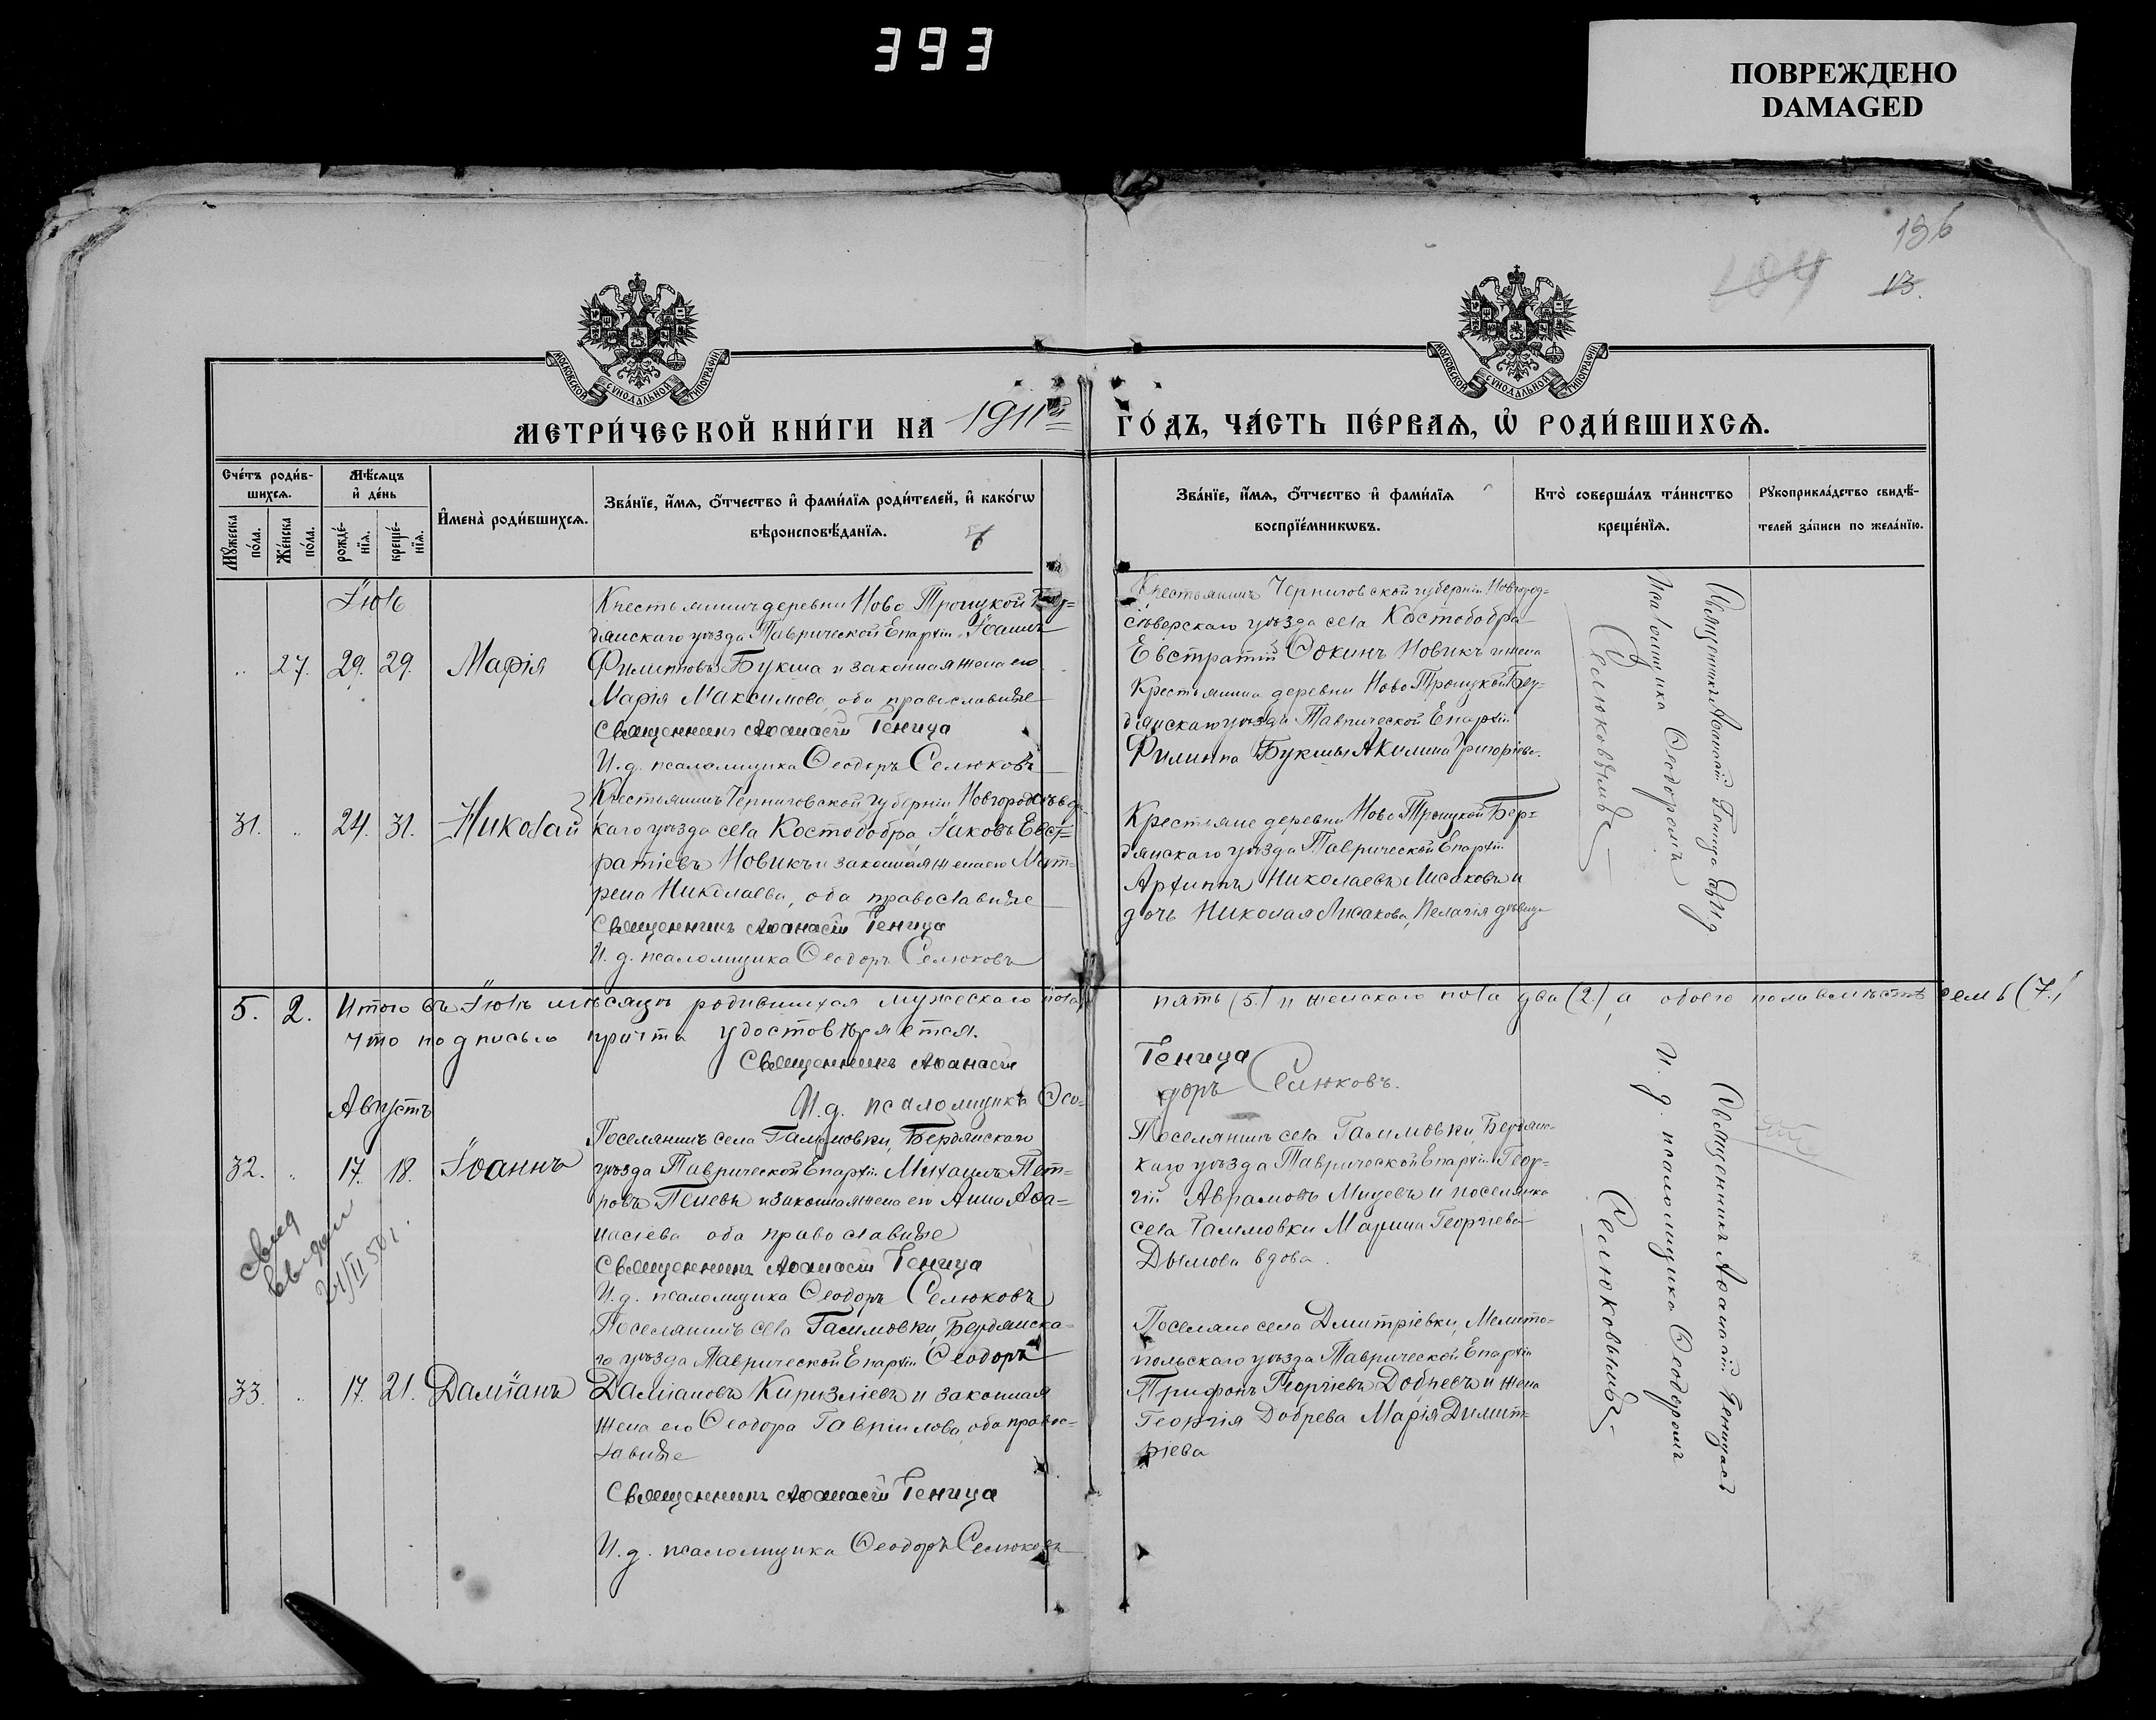 393
ПОВРЕЖДЕНО
DAMAGED
196
104
13.
МОСКОВСКОЙ СѴНОДАЛЬНОЙ ТИПОГРАФІИ
МОСКОВСКОЙ СѴНОДАЛЬНОЙ ТИПОГРАФІИ
МЕТРИ́ЧЕСКОЙ КНИ́ГИ НА 1911й ГО́ДЪ, ЧА́СТЬ ПЕ́РВАѦ, Ѡ҆ РОДИ́ВШИХСѦ.
Сче́тъ роди́вшихсѧ.
Мꙋ́жеска по́ла.
Же́нска по́ла.
Мѣ́сѧцъ и҆ де́нь
рожде́нїѧ.
креще́нїѧ.
И҆мена̀ роди́вшихсѧ.
Зва́нїе, и҆́мѧ, ѻ҆́тчество и҆ фами́лїѧ роди́телей, и҆ како́гѡ
вѣроисповѣ́данїѧ.
Зва́нїе, и҆́мѧ, ѻ҆́тчество и҆ фами́лїѧ
воспрїе́мникѡвъ.
Кто̀ соверша́лъ та́инство
креще́нїѧ.
Рꙋкоприкла́дство свидѣ́-
телей за́писи по жела́нїю.
Іюль
27. 29. 29. Марія
Крестьянинъ деревни Ново Троицкой Бер-
дянскаго уѣзда Таврической Епархіи Іоаннъ
Филипповъ Букша и законная жена его
Марія Максимова, оба православные
Священникъ Аѳанасій Геница
И.д. псаломщика Ѳеодоръ Селюковъ
Крестьянинъ Черниговской губерніи Новгород-
сѣверскаго уѣзда села Костобобра
Евстратій Новикъ и жена
Крестьянина деревни Ново Троицкой Бер-
дянскаго уѣзда Таврической Епархіи
Филиппа Букшы Акилина Григорьева.
Священникъ Аѳанасій Геница съ И.д.
псаломщика Ѳеодоромъ
Селюковымъ
31. 24. 31. Николай
Крестьянинъ Черниговской губерніи Новгородсѣверс-
каго уѣзда села Костобобра Іаковъ Евст-
ратіевъ Новикъ и законная жена его Мат-
рена Николаева, оба православные
Священникъ Аѳанасій Геница
И.д. псаломщика Ѳеодоръ Селюковъ
Крестьяне деревни Ново Троицкой Бер-
дянскаго уѣзда Таврической Епархіи
Архиппъ Николаевъ Лисаковъ и
дочь Николая Лисакова, Пелагія дѣвица
5. 2. Итого въ Іюлѣ мѣсяцѣ родившихся мужескаго пола пять (5.) и женскаго пола два (2.), а обоего пола вмѣстѣ семь (7.)
что подписью причта удостовѣряется.
Священникъ Аѳанасій Геница
И.д. псаломщика Ѳеодоръ Селюковъ.
Августъ
32. 17. 18. Іоаннъ
Поселянинъ села Гамовки, Бердянскаго
уѣзда Таврической Епархіи Михаилъ Пет-
ровъ Пеневъ и законная жена его Анна Аѳа-
насіева оба православные
Священникъ Аѳанасій Геница
И.д. псаломщика Ѳеодоръ Селюковъ
Поселянинъ села Бердянс-
каго уѣзда Таврической Епархіи Геор-
гій Аврамовъ Мицевъ и поселянка
села Марина Георгіева
Дымова вдова.
Священникъ Аѳанасій Геница съ
И.д. псаломщика Ѳеодоромъ
Селюковымъ
24/II 50 г.
33. 17. 21. Даміанъ
Поселянинъ села Бердянска-
го уѣзда Таврической Епархіи Ѳеодоръ
Даміановъ и законная
жена его Ѳеодора Гавріилова, оба правос-
лавные
Священникъ Аѳанасій Геница
И.д. псаломщика Ѳеодоръ Селюковъ
Поселяне села Дмитріевки, Мелито-
польскаго уѣзда Таврической Епархіи
Трифонъ Георгіевъ Добревъ и жена
Георгія Добрева Марія Димит-
ріева